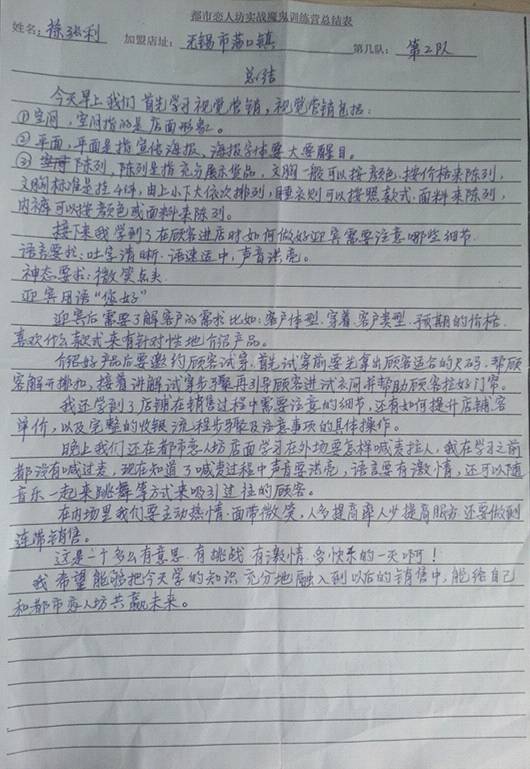 都市恋人坊实战魔鬼训练营总结表
姓名: 张利 加盟店址: 无锡市荡口镇 第几队: 第2队
总结
今天早上我们首先学习视觉营销,视觉营销包括:
①空间,空间指的是店面形象。
②平面,平面是指宣传海报,海报字体要大要醒目。
③陈列,陈列是指充分展示货品,文胸一般可以按颜色.按价格来陈列,
文胸标准是挂4件,由上小下大依次排列,睡衣则可以按照款式.面料来陈列,
内裤可以按颜色或面料来陈列。
接下来我学到了在顾客进店时.如何做好迎宾需要注意哪些细节.
语言要求:吐字清晰.语速适中,声音洪亮。
神态要求:微笑点头
迎宾用语“您好”
迎宾后需要了解客户的需求比如:客户体型.穿着客户类型.预期的价格.
喜欢什么款式来有针对性地介绍产品。
介绍好产品后要邀约顾客试穿.首先试穿前要先拿出顾客适合的尺码.帮顾
客解开排扣,接着讲解试穿步骤再引导顾客进试衣间并帮助顾客拉好门帘。
我还学到了店铺在销售过程中需要注意的细节,还有如何提升店铺客
单价,以及完整的收银流程步骤及注意事项的具体操作。
晚上我们还在都市恋人坊店面学习在外场要怎样喊麦拉人,我在学习之前
都没有喊过麦,现在知道了喊麦过程中声音要洪亮,语言要有激情,还可以随
音乐一起来跳舞等方式来吸引过往的顾客。
在内场里我们要主动热情.面带微笑,人多提高率人少提高服务还要做到
连带销售。
这是一个多么有意思.有挑战.有激情.多快乐的一天啊!
我希望能够把今天学的知识充分地融入到以后的销售中,能给自己
和都市恋人坊共赢未来。